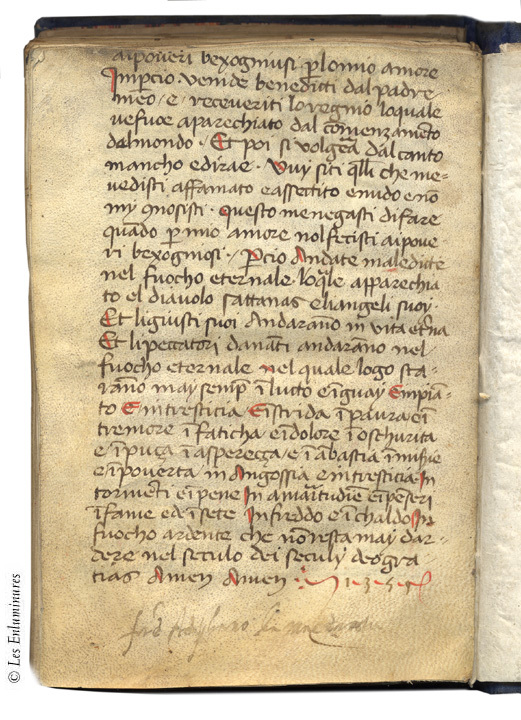 ai poveri bexogniusi p̱ lomio amore
Imp̱cio venide beneditti dal padre
mio / e receveriti lo regnio loquale
ve fuoe aparechiato dal comenzam̄eto
del mondo · Et poi si volgera dal canto
mancho e dirae · Vuy siti q̄lli che me
vedisti affamato e assectito e nudo e nō
my q̄nosisti · questo me negasti di fare
quādo p̱ mio amore nol fecisti ai pove
ri bexognosi · P̱cio Andate maledicte
nel fuocho eternale · loq̄le apparechia
to el diavolo sattanas e li angeli suoy ·
Et li giusti suoi Andaranō in vita et̄na
Et li peccatori danati andaranō nel
fuocho eternale nel quale logo sta-
ranō may semp̱ ī lucto e ī guay E in piā-
to E in tresticia E ī strida ī paura e ī
tremore ī faticha e ī dolore ī oschurita
e ī puza ī asperecça e ī abastia ī misie
e ī poverta in Angossia e in tresticia In
tormenti e ī pene In amaritudīe e ī pēseri
ī fame e de ī sete In freddo e ī chaldo In
fuocho ardente che nō resta may dar-
dere nel seculo dei seculy deo gra
tias Amen Amen
© Les Enluminures